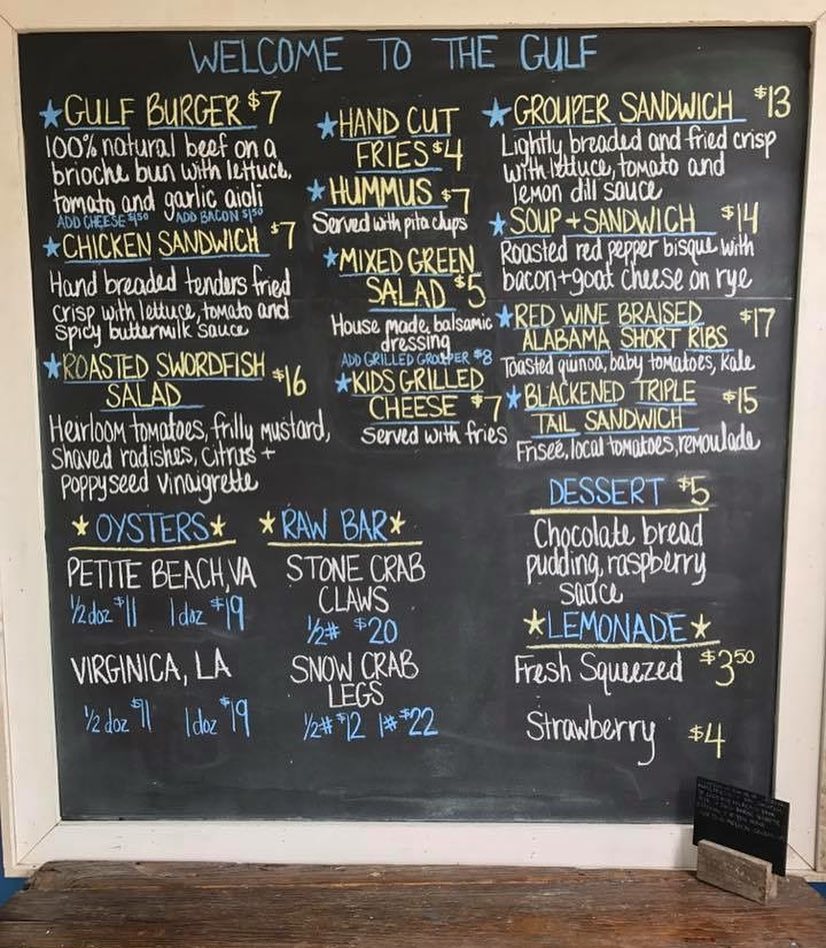 WELCOME TO THE GULF
GULF BURGER $7
100% natural beef on a
brioche bun with lettuce,
tomato and garlic aioli
ADD CHEESE $1.50 ADD BACON $1.50
CHICKEN SANDWICH $7
Hand breaded tenders fried
crisp with lettuce, tomato and
spicy buttermilk sauce
ROASTED SWORDFISH
SALAD $16
Heirloom tomatoes, frilly mustard,
shaved radishes, citrus +
poppyseed vinaigrette
HAND CUT
FRIES $4
HUMMUS $7
Served with pita chips
MIXED GREEN
SALAD $5
House made, balsamic
dressing
ADD GRILLED GROUPER $8
KIDS GRILLED
CHEESE $7
Served with fries
GROUPER SANDWICH $13
Lightly breaded and fried crisp
with lettuce, tomato and
lemon dill sauce
SOUP + SANDWICH $14
Roasted red pepper bisque with
bacon + goat cheese on rye
RED WINE BRAISED $17
ALABAMA SHORT RIBS
Toasted quinoa, baby tomatoes, Kale
BLACKENED TRIPLE $15
TAIL SANDWICH
Friseé, local tomatoes, remoulade
OYSTERS
PETITE BEACH, VA
1/2 doz $11 1 doz $19
VIRGINICA, LA
1/2 doz $11 1 doz $19
RAW BAR
STONE CRAB
CLAWS
1/2# $20
SNOW CRAB
LEGS
1/2# $12 1# $22
DESSERT $5
Chocolate bread
pudding, raspberry
sauce
LEMONADE
Fresh Squeezed $3.50
Strawberry $4